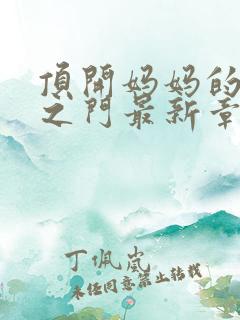 頂開妈妈的
之门最新章
丁佩岚
未经同意禁止转载